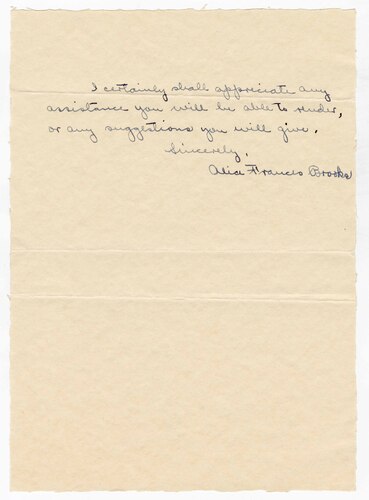 I certainly shall appreciate any
assistance you will be able to render,
or any suggestions you will give.
Sincerely,
Alice Frances Brooks